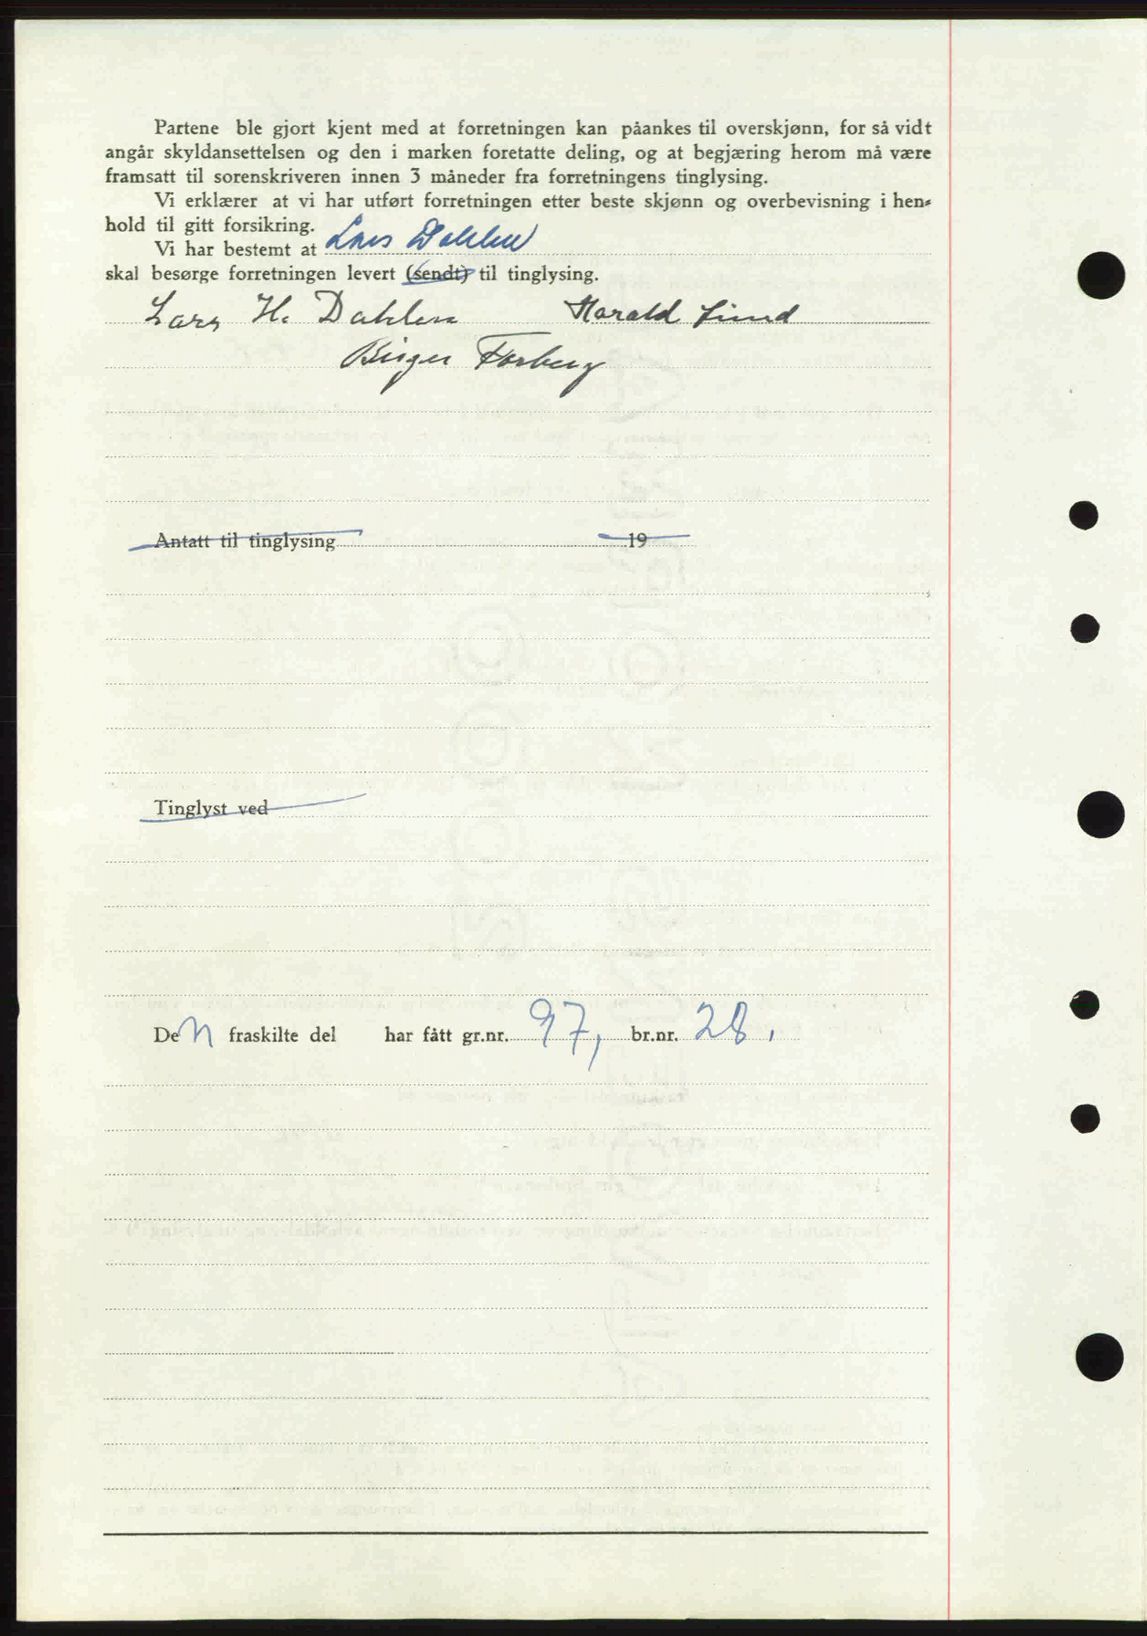 Partene ble gjort kjent med at forretningen kan påankes til overskjønn, for så vidt
angår skyldansettelsen og den i marken foretatte deling, og at begjæring herom må være
framsatt til sorenskriveren innen 3 måneder fra forretningens tinglysing.
Vi erklærer at vi har utført forretningen etter beste skjønn og overbevisning i hen-
hold til gitt forsikring.
Vi har bestemt at Lars Dahlen
skal besørge forretningen levert (sendt) til tinglysing.
Lars H. Dahlen Harald Lund
Birger Forberg
Antatt til tinglysing 19
Tinglyst ved
Den fraskilte del har fått gr.nr. 97, br.nr. 28.